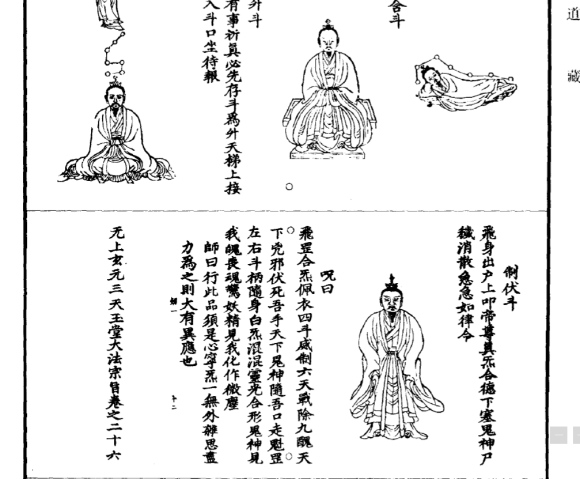 道藏
合斗
外斗
有事祈真必先存斗為外天梯上接
入斗口坐待報
制伏斗
飛身出戶上叩帝尊真炁合德下塞鬼神尸
穢消散急急如律令
呪曰
飛罡合炁佩衣四斗威制六天戰除九醜天
下兇邪伏死吾手天下鬼神隨吾口走魁罡
左右斗柄隨身白炁混混靈光合形鬼神見
我魄喪魂驚妖精見我化作微塵
師曰行此品須是心寧炁一無外雜思盡
力為之則大有異應也
十二
无上玄元三天玉堂大法宗旨卷之二十六